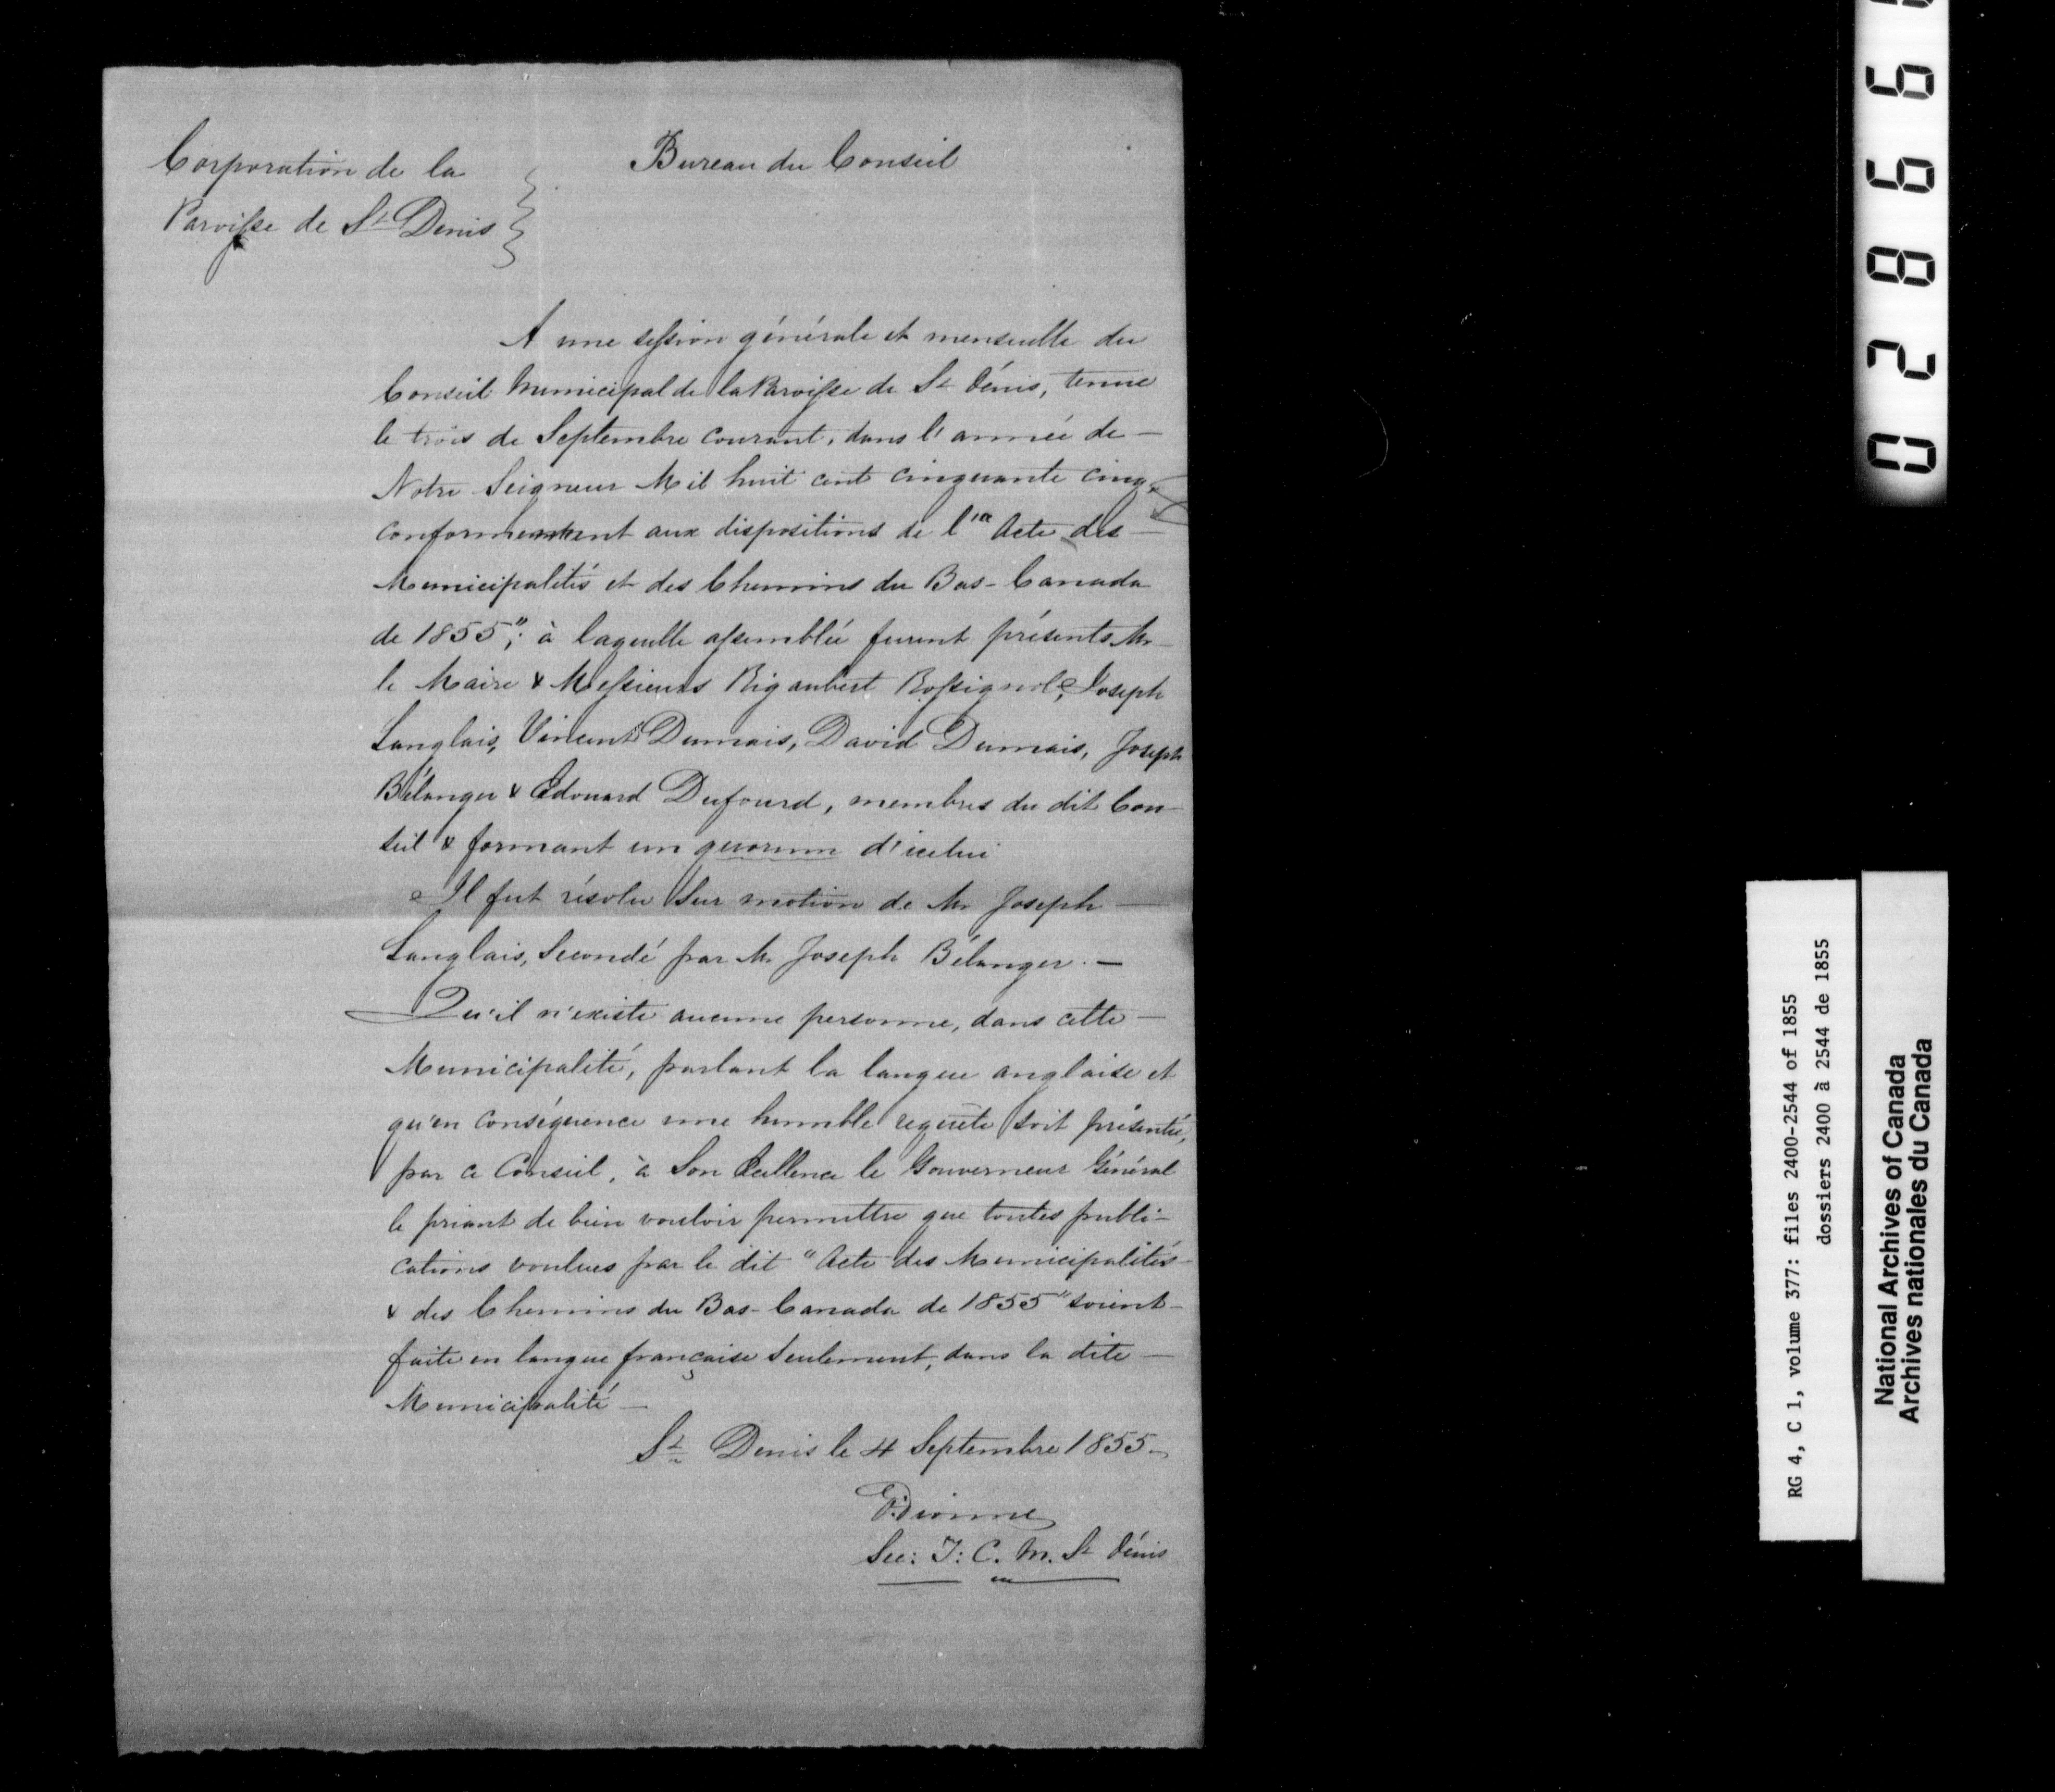 Corporation de la
Paroisse de St Denis
Bureau du Conseil
A une session générale et mensuelle du
Conseil Municipal de la Paroisse de St Dénis, tenue
le trois de Septembre courant, dans l'année de —
Notre Seigneur Mil huit cent cinquante cinq,
conformement aux dispositions de l'" Acte des —
Municipalités et des Chemins du Bas-Canada
de 1855"; à laquelle assemblée furent présents Mr
le Maire & Messieurs Rigaubert Rossignol, Joseph
Langlais, Vincent Dumais, David Dumais, Joseph
Bélanger & Edouard Dufourd, membres du dit Con-
seil & formant un quorum d'icelui
Il fut résolu sur motion de Mr Joseph —
Langlais, Secondé par Mr Joseph Bélanger. —
Qu'il n'existe aucune personne, dans cette —
Municipalité, parlant la langue anglaise et
qu'en conséquence une humble requête soit présentée,
par ce Conseil, à Son Excellence le Gouverneur Général
le priant de bien vouloir permettre que toutes publi-
cations voulues par le dit "Acte des Municipalités
& des Chemins du Bas-Canada de 1855" soient
faite en langue française seulement, dans la dite —
Municipalité —
St Denis le 4 Septembre 1855
P. Dionne
Sec: T: C. M. St Dénis
02866
RG 4, C 1, volume 377: files 2400-2544 of 1855
dossiers 2400 à 2544 de 1855
National Archives of Canada
Archives nationales du Canada